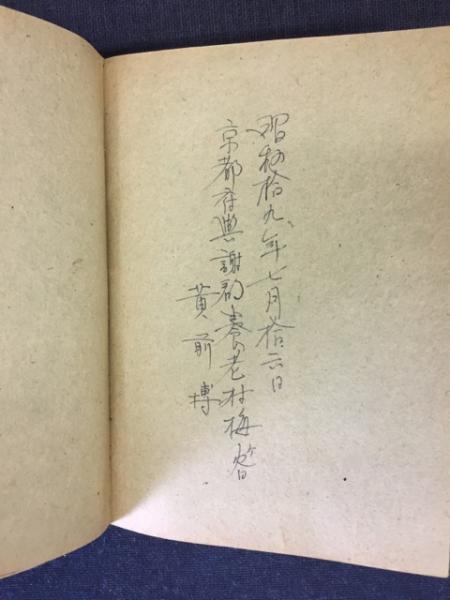 昭和拾九年七月拾六日
京都府與謝郡養老村梅ケ谷
黄前博